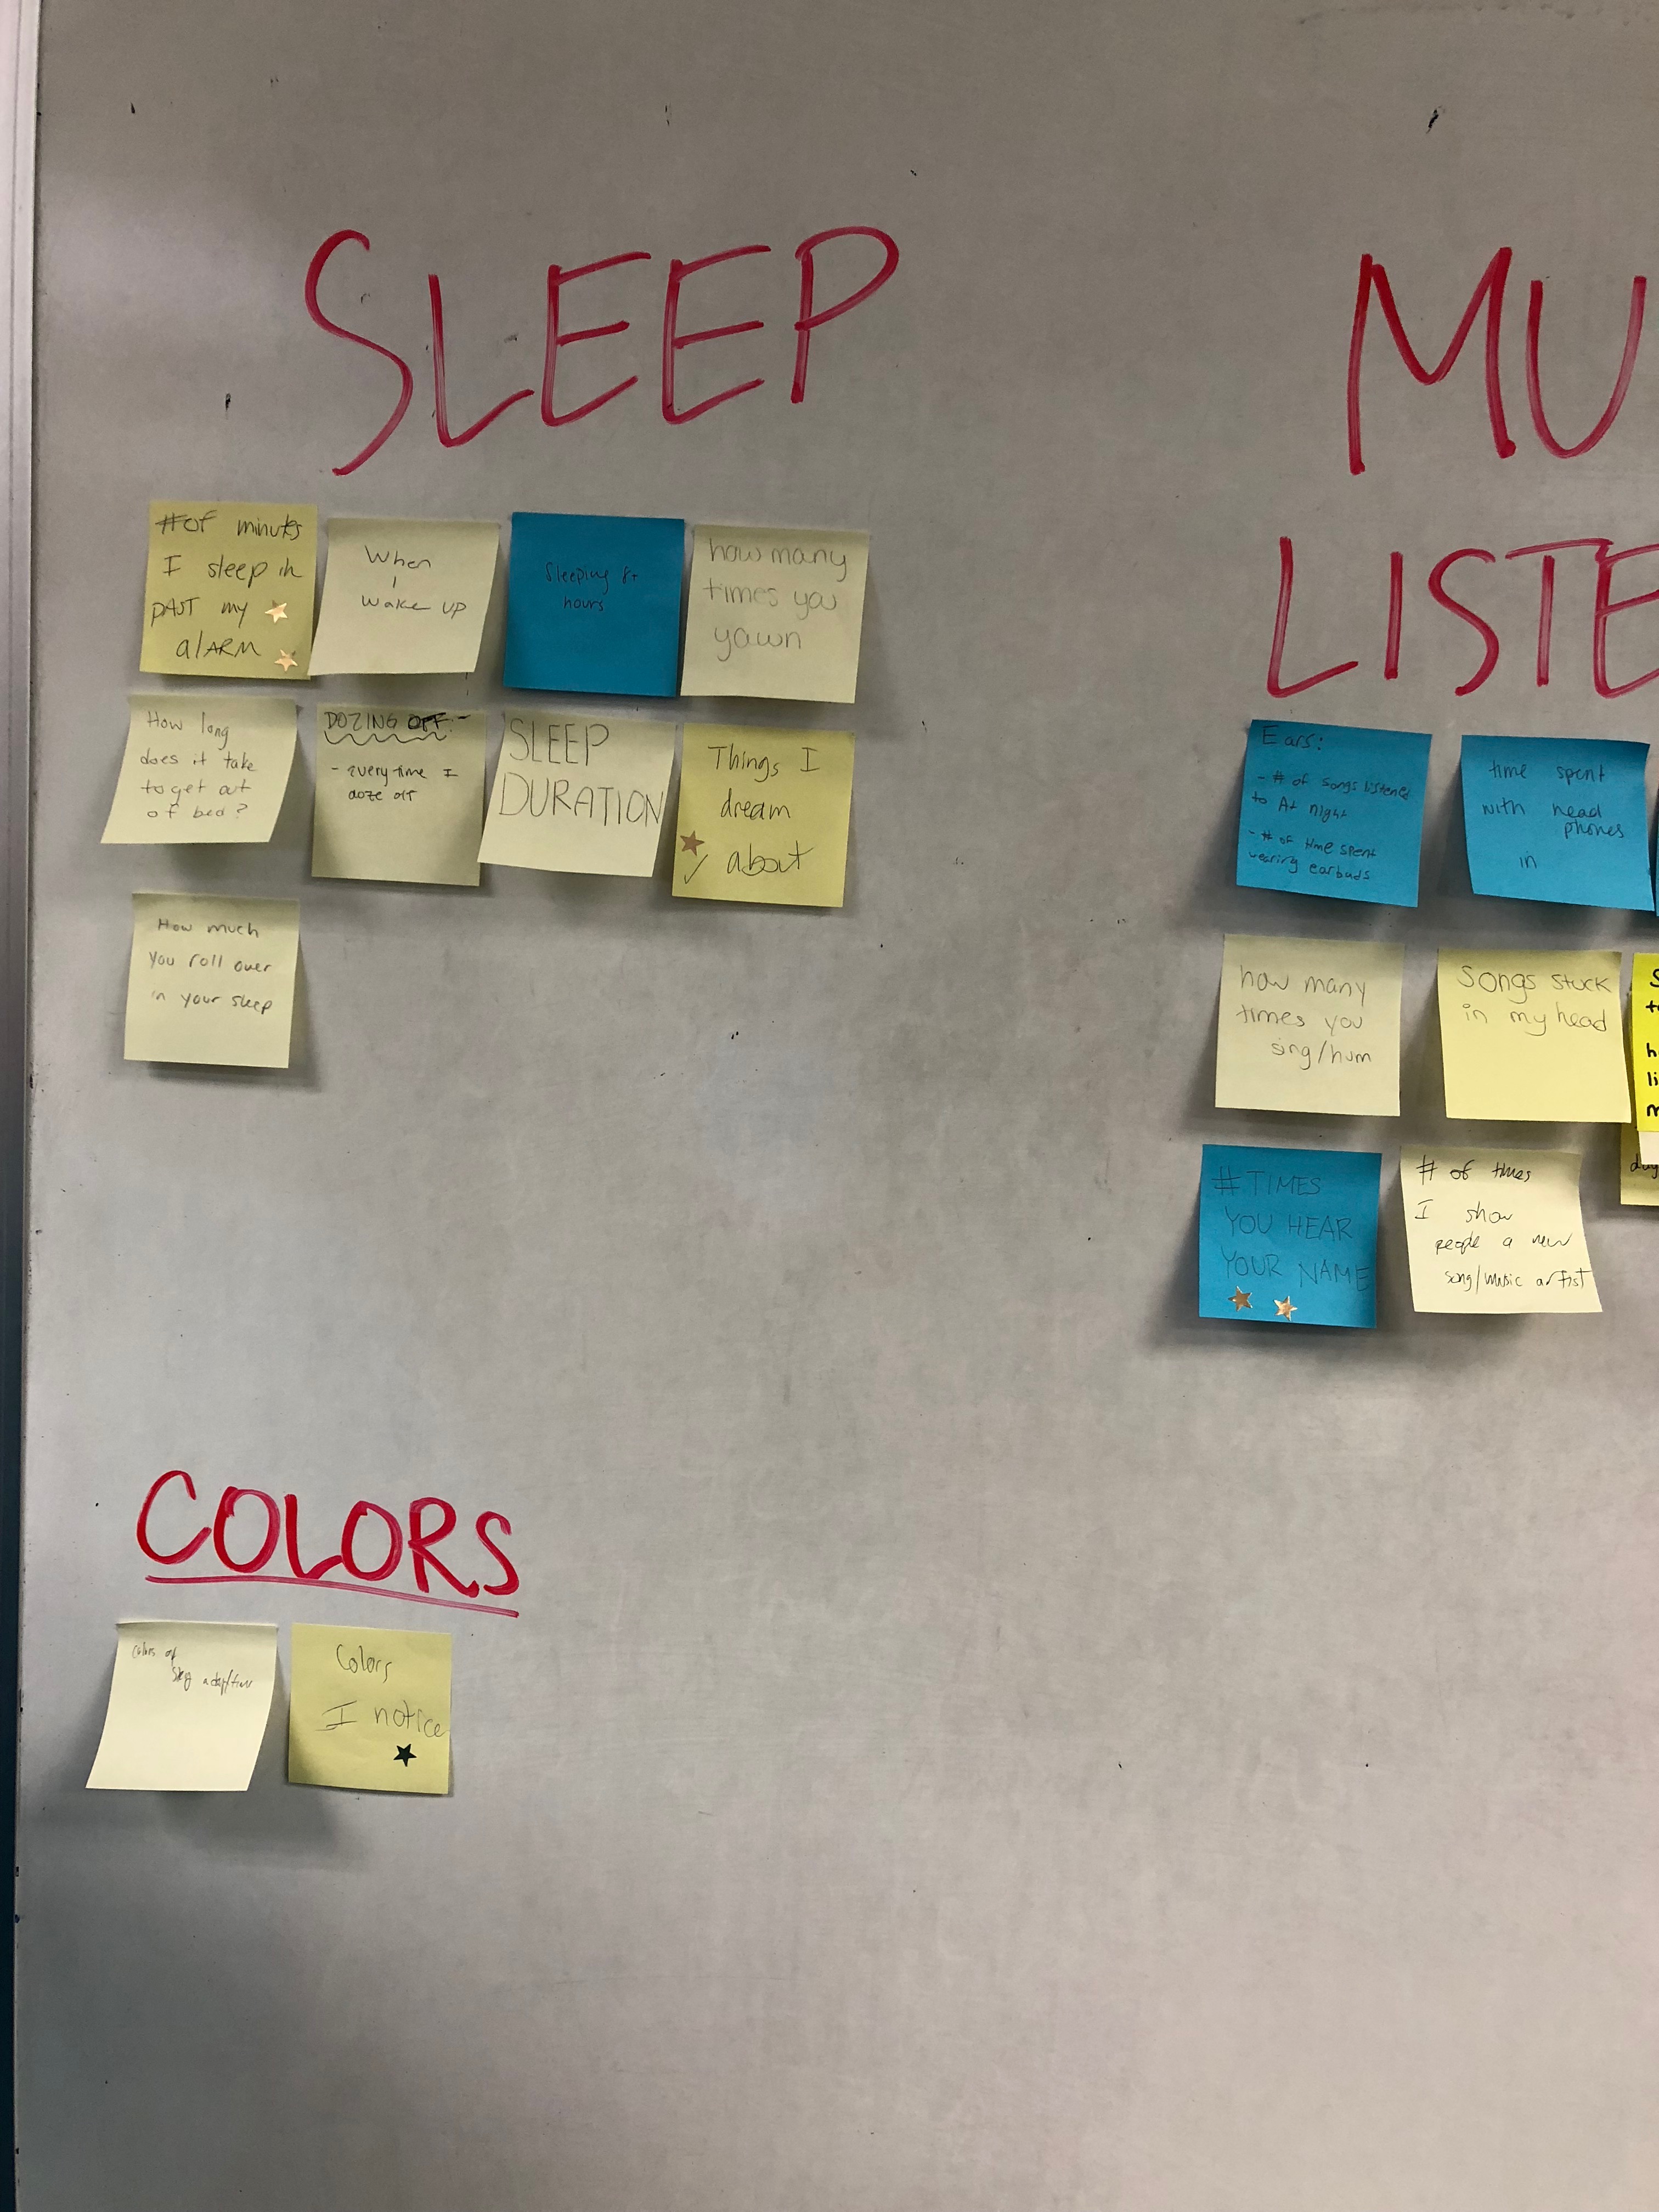 SLEEP
#of minutes
I sleep in
past my
alARM
When
I
wake up
Sleeping 8+
hours
how many
times you
yawn
How long
does it take
to get out
of bed?
DOZING OFF:-
- every time I
doze off
SLEEP
DURATION
Things I
dream
about
How much
you roll over
in your sleep
COLORS
Colors of
Colors
I notice
MU
LISTE
Ears:
- # of songs listened
to At night
- # of time spent
wearing earbuds
time spent
with head
phones
in
how many
times you
sing/hum
Songs stuck
in my head
# TIMES
YOU HEAR
YOUR NAME
# of times
I show
people a new
song/music artist